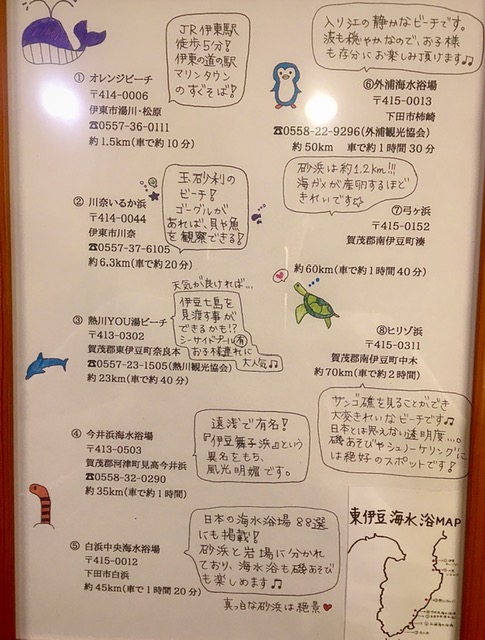 ① オレンジビーチ
〒414-0006
伊東市湯川・松原
☎0557-36-0111
約1.5km(車で約10分)
JR伊東駅
徒歩5分!
伊東の道の駅
マリンタウン
のすぐそば!
② 川奈いるか浜
〒414-0044
伊東市川奈
☎0557-37-6105
約6.3km(車で約20分)
玉砂利の
ビーチ!
ゴーグルが
あれば、貝や魚
を観察できる!
③ 熱川YOU湯ビーチ
〒413-0302
賀茂郡東伊豆町奈良本
☎0557-23-1505(熱川観光協会)
約23km(車で約40分)
天気が良ければ…
伊豆七島を
見渡す事が
できるかも!?
シーサイドプール有
お子様連れに
大人気♫
④ 今井浜海水浴場
〒413-0503
賀茂郡河津町見高今井浜
☎0558-32-0290
約35km(車で約1時間)
遠浅で有名!
『伊豆舞子浜』という
異名をもち、
風光明媚です。
⑤ 白浜中央海水浴場
〒415-0012
下田市白浜
約45km(車で1時間20分)
日本の海水浴場88選
にも掲載!
砂浜と岩場に分かれ
ており、海水浴も磯あそび
も楽しめます♫
真っ白な砂浜は絶景♥
入り江の静かなビーチです。
波も穏やかなので、お子様
も存分にお楽しみ頂けます♫
⑥外浦海水浴場
〒415-0013
下田市柿崎
☎0558-22-9296(外浦観光協会)
約50km 車で約1時間30分
砂浜は約1.2km!!!
海ガメが産卵するほど
きれいです☆
⑦弓ヶ浜
〒415-0152
賀茂郡南伊豆町湊
約60km(車で約1時間40分)
⑧ヒリゾ浜
〒415-0311
賀茂郡南伊豆町中木
約70km(車で約2時間)
サンゴ礁を見ることができ
大変きれいなビーチです♫
日本とは思えない透明度…。
磯あそびやシュノーケリングに
は絶好のスポットです!
東伊豆海水浴MAP